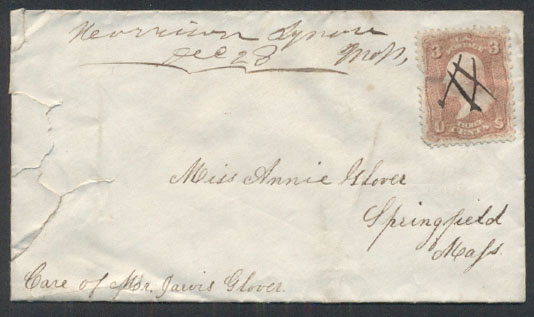 Morrison
Dec 28 Mass,
U.S. POSTAGE
3 3
U THREE CENTS S
Miss Annie Glover
Springfield
Mass.
Care of Mr. Jarvis Glover.